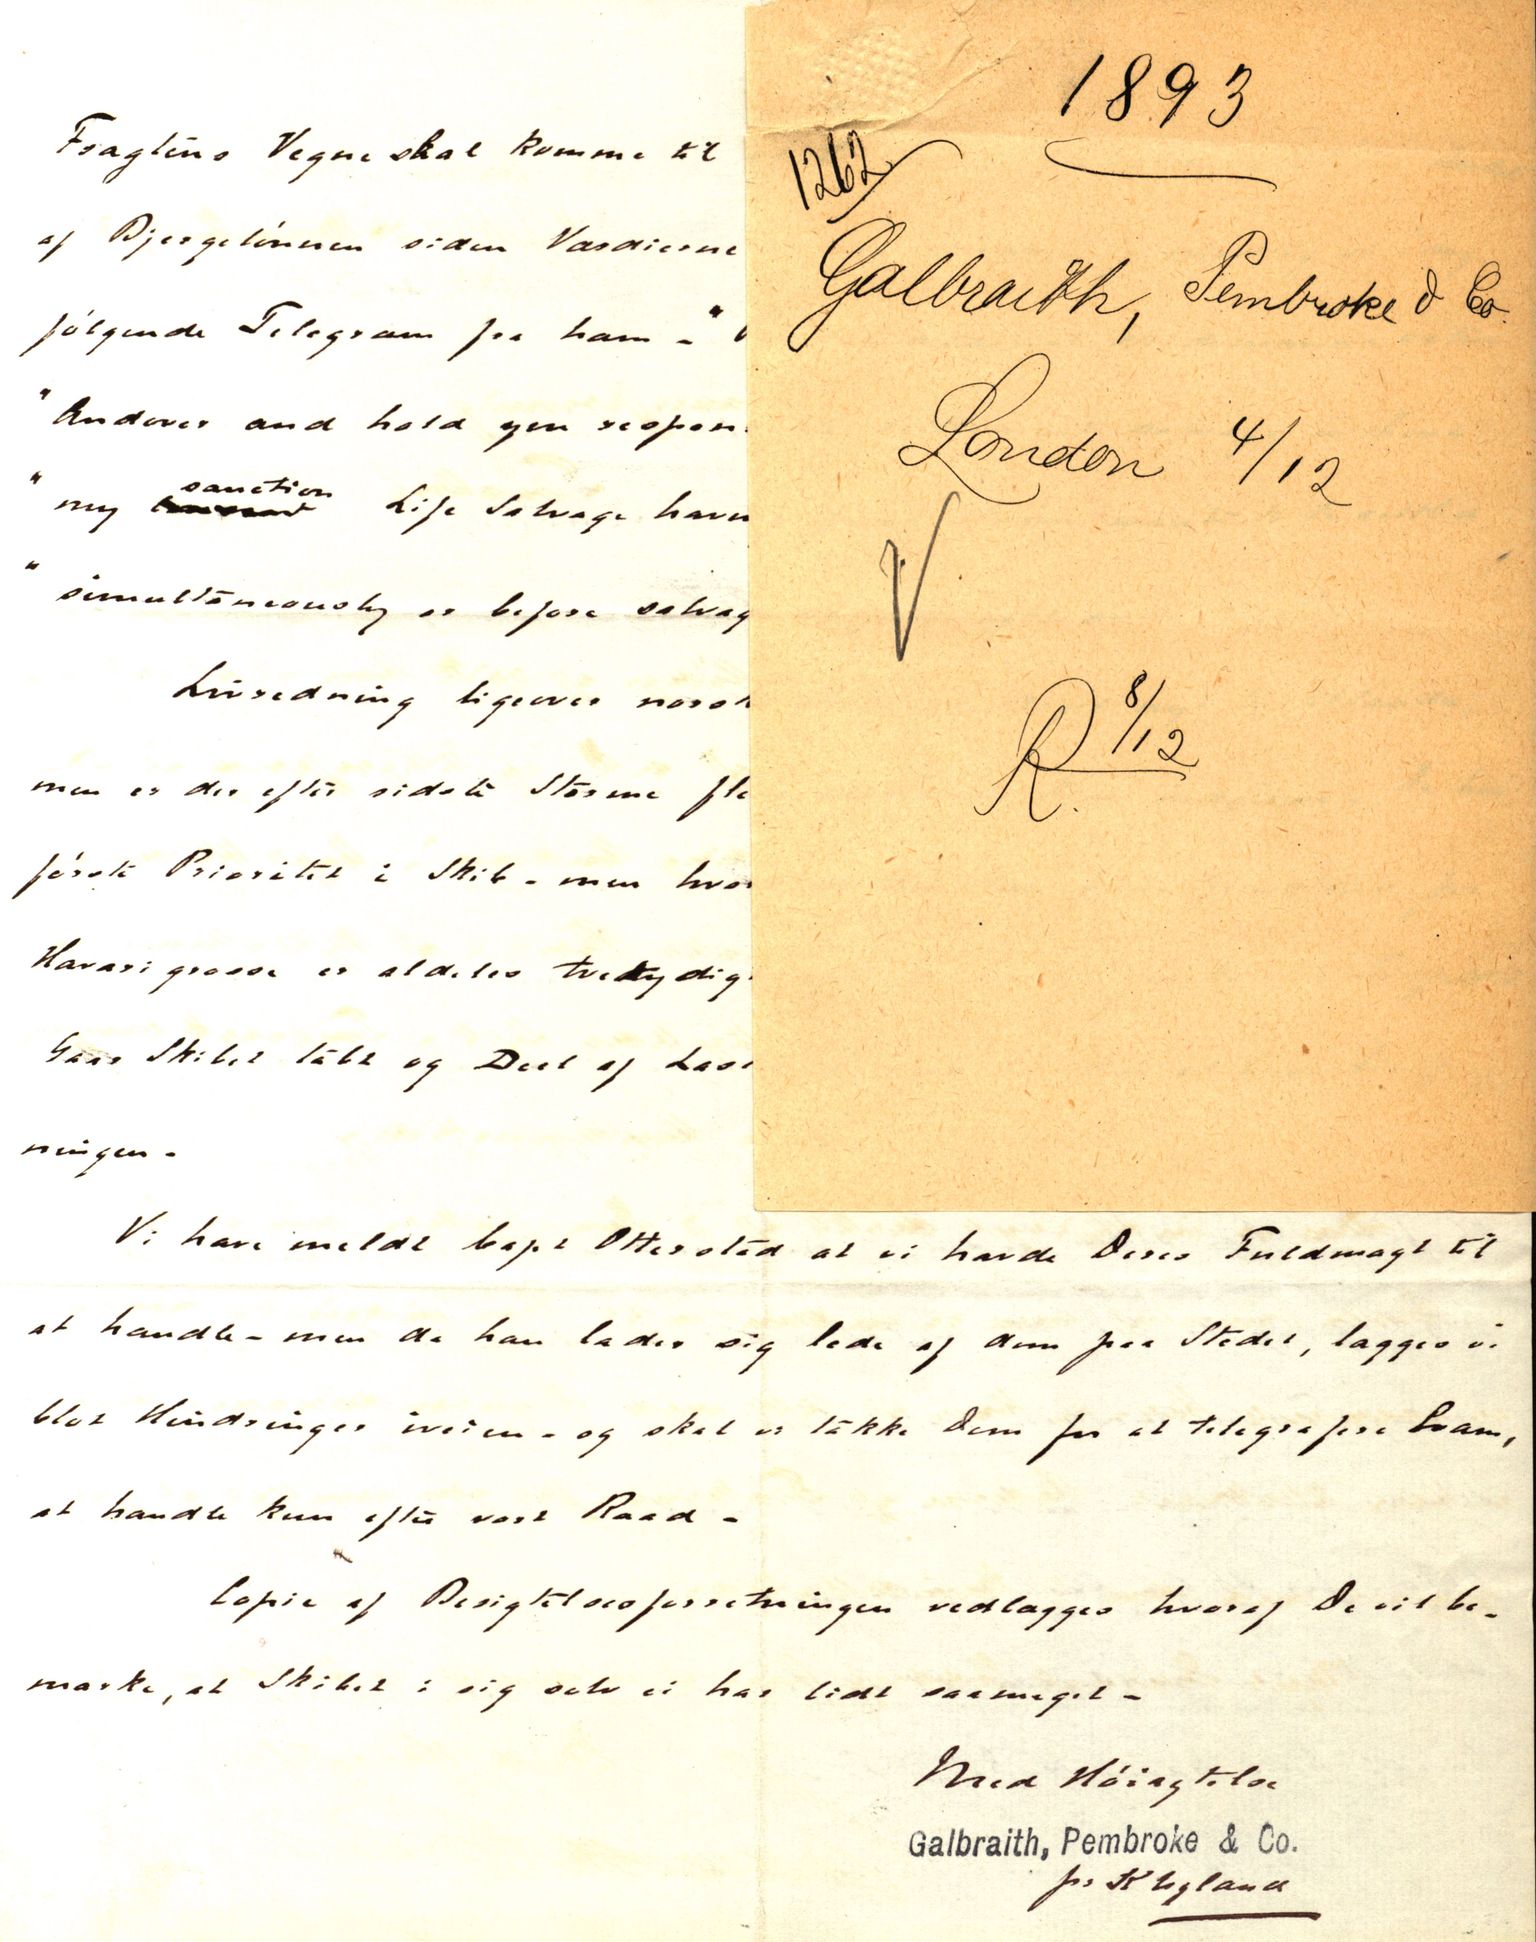 1893
1262
Galbraith, Pembroke & Co.
London 4/12
R. 8/12
Fragtens Vegne skal komme til
af Bjergelönnen siden Værdierne
fölgende Telegram fra ham - "
"Andover and hold you respon
"my sanction Life Salvage havn
"simultaneously or before salvag
Livredning ligeover norsk
men er der efter sidste Storme fle
förste Prioritet i Skib - men hvor
Havari grosse er aldeles tvetydig
Gaar Skibet tabt og Deel af Las
ningen -
Vi have meldt Capt Otterstad at vi havde Deres Fuldmagt til
at handle - men da han lader sig lede af dem paa Stedet, lægges vi
blot Hindringer iveien - og skal vi takke Dem for at telegrafere Evam,
at handle kun efter vort Raad -
Copie af Besigtelsesforretningen vedlægges hvoraf De vil be-
mærke, at Skibet i sig selv ei har lidt saameget -
Med Höiagtelse
Galbraith, Pembroke & Co.
pr K Ugland